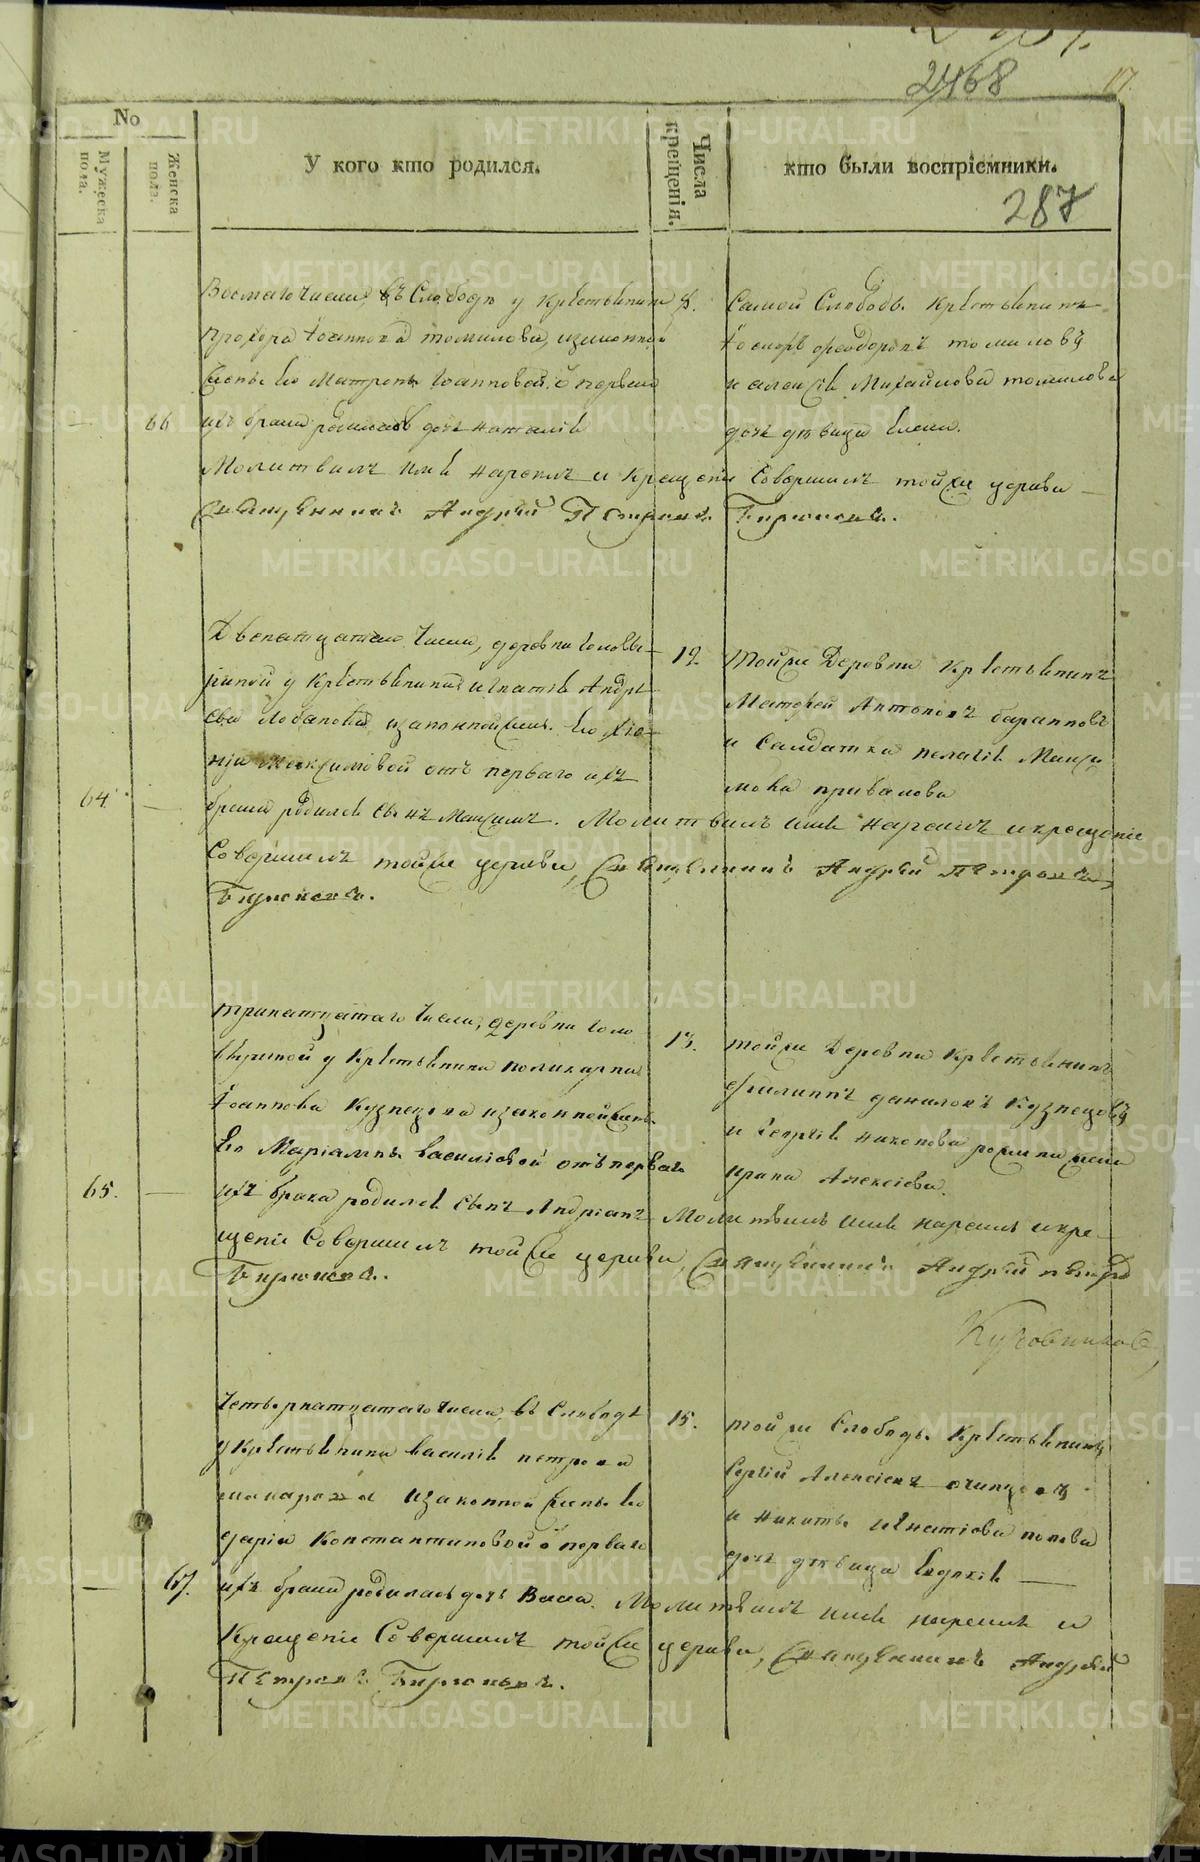 2468
17.
No
Мужеска пола.
Женска пола.
У кого кто родился.
Числа крещенія.
кто были воспріемники.
287
Восмаго числа, въ Слободѣ у крестьянина
8.
Самой Слободы крестьянинъ
Прохора Іоаннова Томилова, изаконной
Ѳеодоровъ томиловъ
Жены его Матроны Іоанновой, ѿ перваго
и алексѣя Михайлова томилова
66
ихъ брака родилась дочь наталія
дочь дѣвица Елена.
Молитвилъ имя нарекъ и крещеніе Совершилъ тойже церкви
Священникъ Андрей Петровъ Бирюковъ.
Двенатцатаго числа, деревни Голов
12.
тойже Деревни крестьянинъ
риной у крестьянина игнатія Андре
Матфей Антоновъ баранновъ
ева Лобанова, изаконной жены его
и Салдатка пелагія Макси
Максимовой отъ перваго ихъ
мова привалова
64.
брака родился Сынъ Максимъ. Молитвилъ имя нарекъ и крещеніе
Совершилъ тойже церкви, Священникъ Андрей Петровъ
Бирюковъ.
тринатцатаго числа, деревни Голо
13.
тойже Деревни крестьянинъ
у крестьянина поликарпа
филиппъ даниловъ Кузнецовъ
Іоаннова Кузнецова изаконной жены
и Георгія никонова жена
его Маріамны василіевой отъ перваго
ирина Алексіева.
65.
ихъ брака родился Сынъ Андріанъ Молитвилъ имя нарекъ и кре
щеніе Совершилъ тойже церкви, Священникъ Андрей петро
Бирюковъ.
Четырнатцатаго числа, въ Слободѣ
15.
тойже Слободы крестьянинъ
у крестьянина василія петрова
Сергій Алексіевъ
макарова изаконной жены его
и никиты игнатіева попова
дарьи Константиновой ѿ перваго
дочь дѣвица Евдокія
67.
ихъ брака родилась дочь Васса. Молитвилъ имя нарекъ и
Крещеніе Совершилъ тойже церкви, Священникъ Андрей
Петровъ Бирюковъ.
METRIKI.GASO-URAL.RU